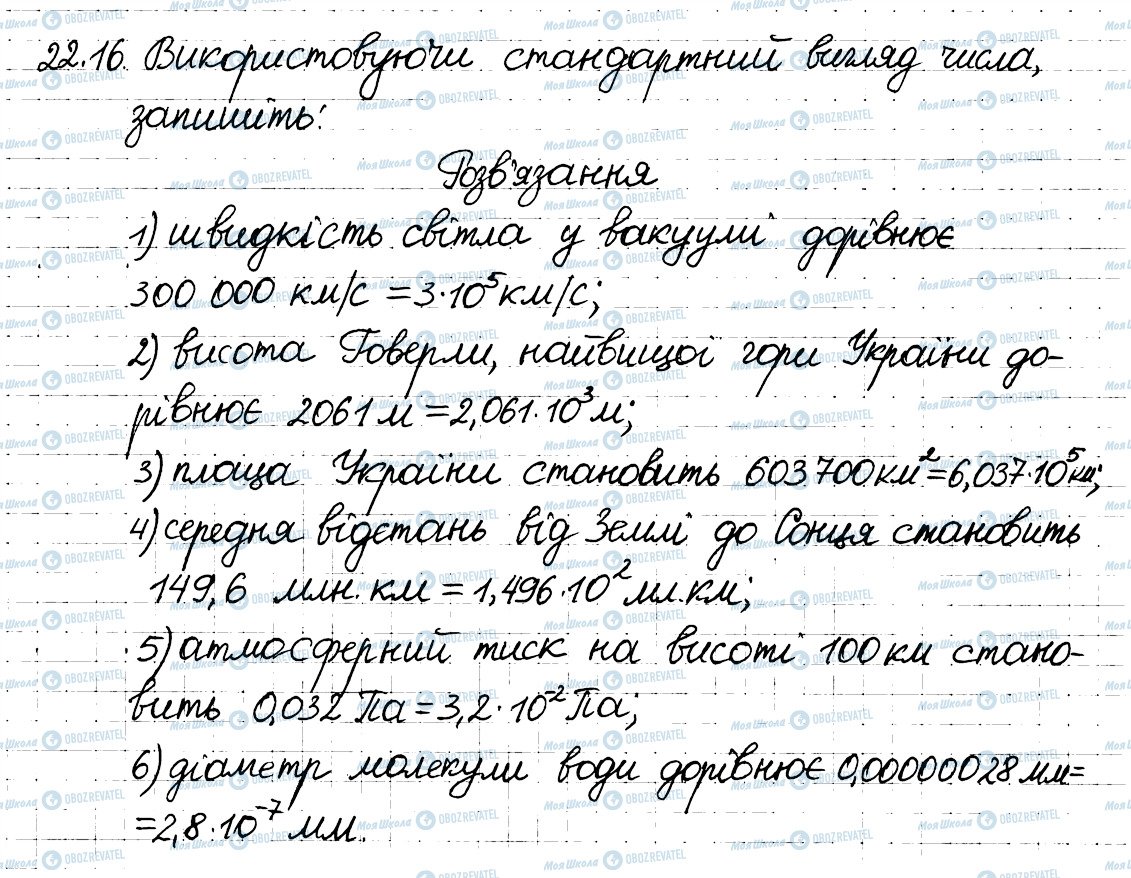 22.16. Використовуючи стандартний вигляд числа,
запишіть:
Розв'язання
1) швидкість світла у вакуумі дорівнює
300 000 км/с = 3·10⁵ км/с;
2) висота Говерли, найвищої гори України до-
рівнює 2061 м = 2,061·10³ м;
3) площа України становить 603 700 км² = 6,037·10⁵ км;
4) середня відстань від Землі до Сонця становить
149,6 млн. км = 1,496·10² мл.км;
5) атмосферний тиск на висоті 100 км стано-
вить 0,032 Па = 3,2·10⁻² Па;
6) діаметр молекули води дорівнює 0,00000028 мм=
=2,8·10⁻⁷ мм.